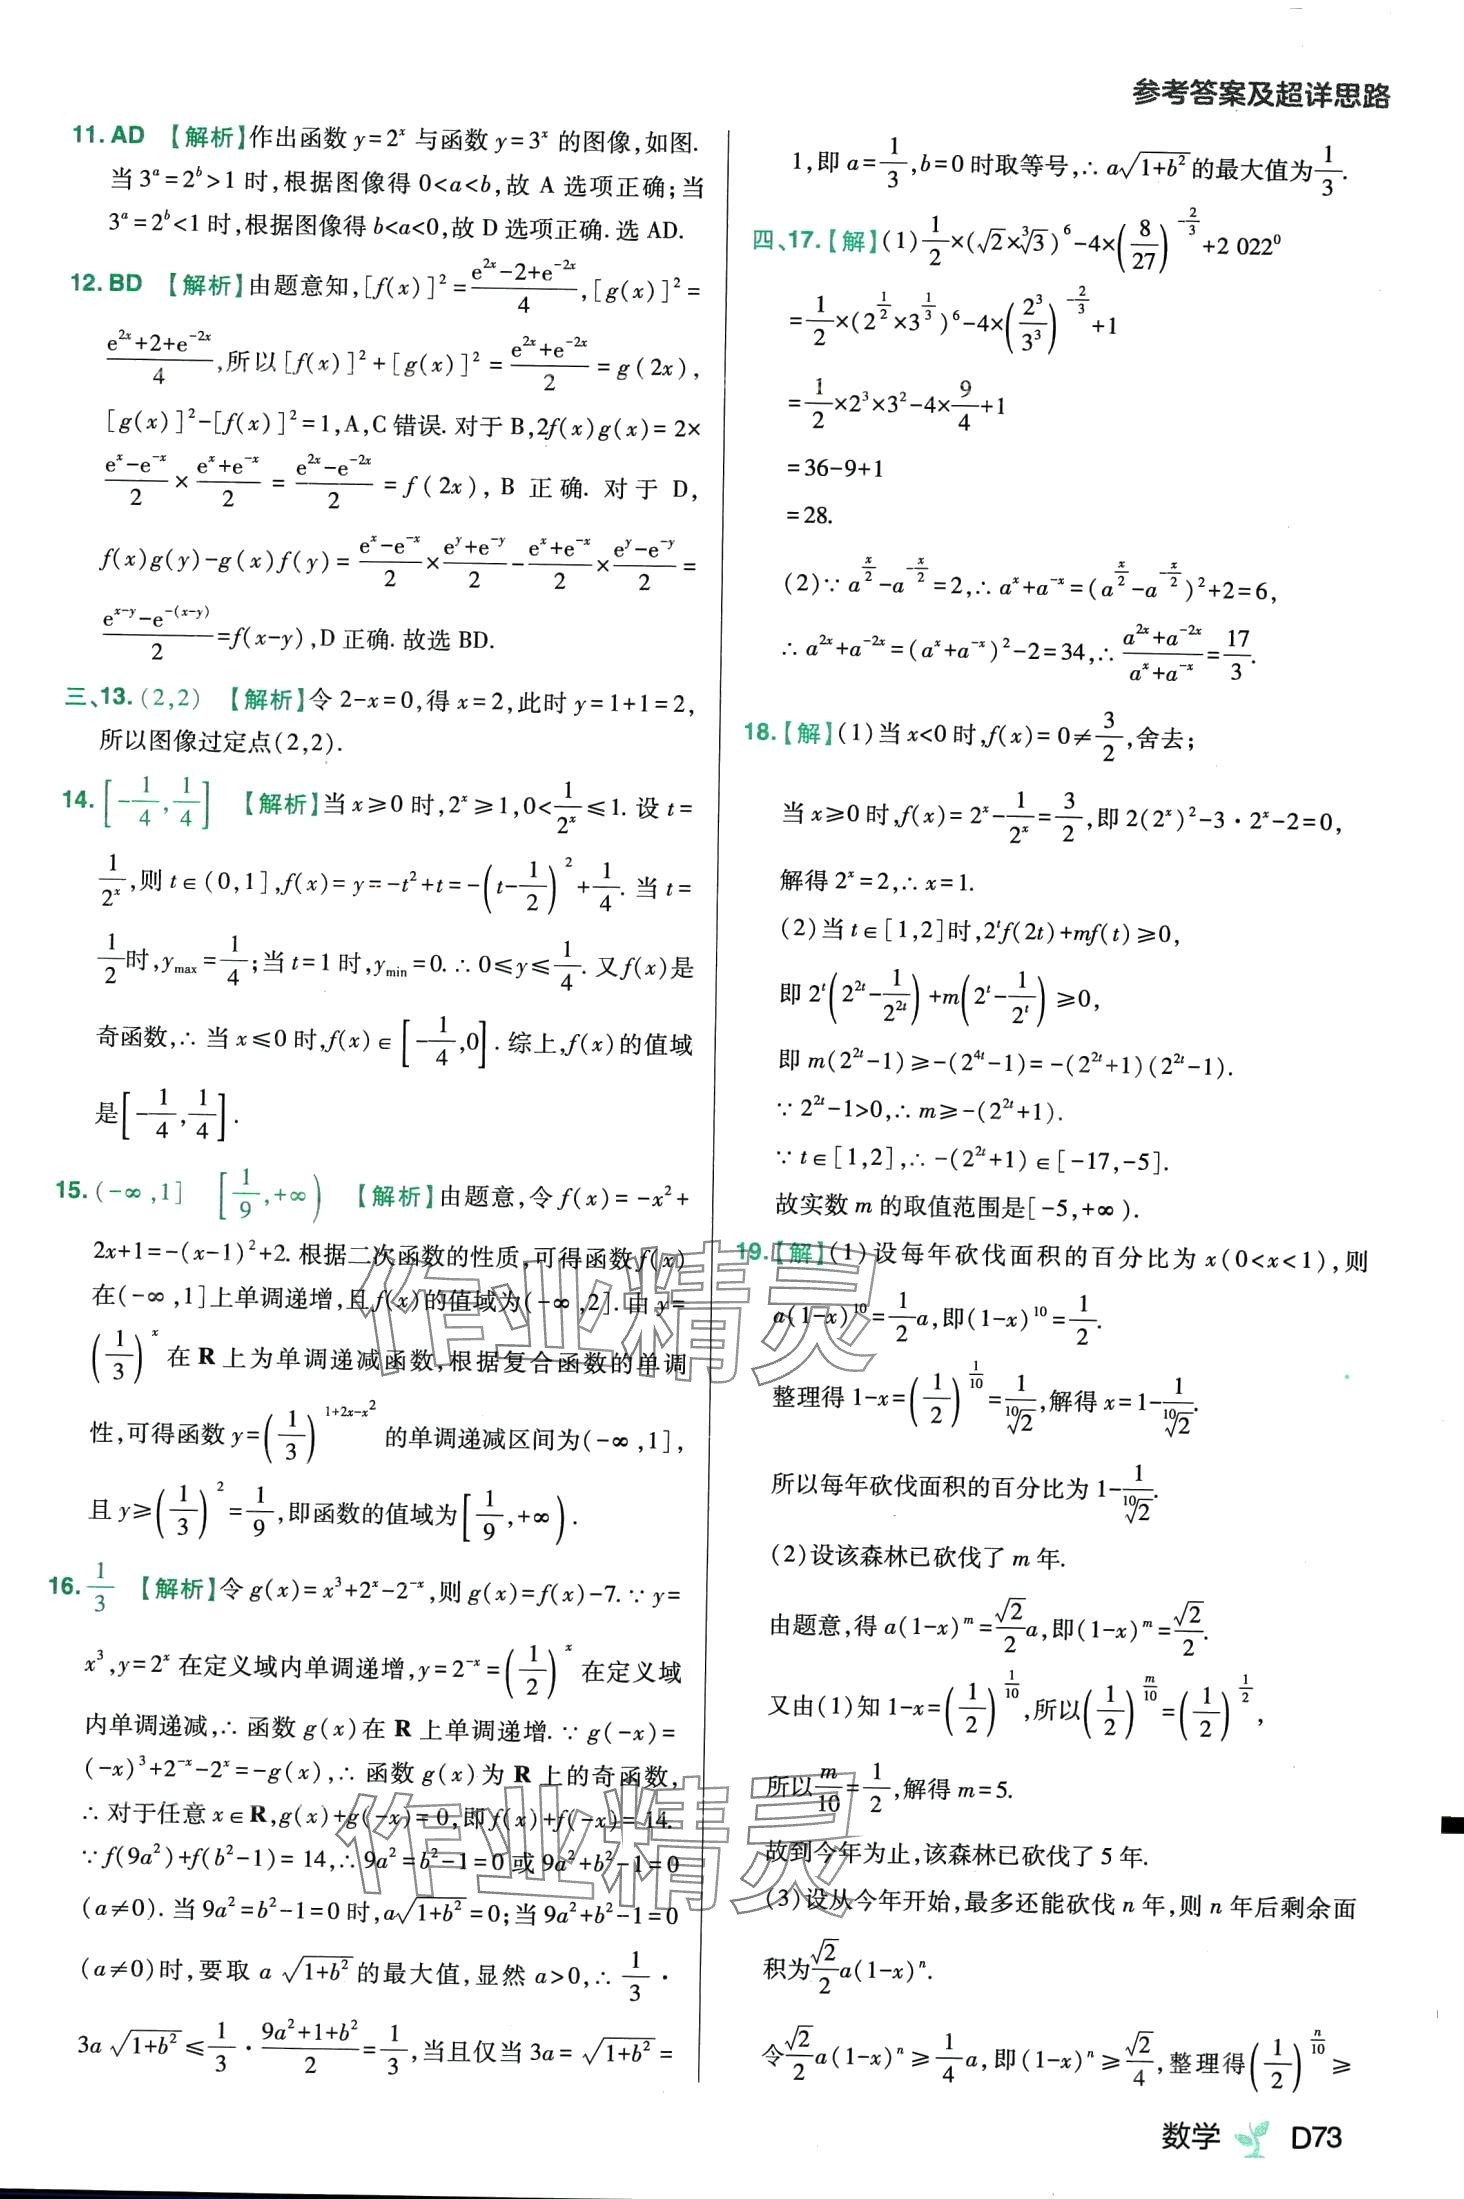 参考答案及超详思路
11. AD 【解析】作出函数 y=2^x 与函数 y=3^x 的图像,如图.
当 3^a=2^b>1 时,根据图像得 0<a<b,故 A 选项正确;当
3^a=2^b<1 时,根据图像得 b<a<0,故 D 选项正确. 选 AD.
12. BD 【解析】由题意知,[f(x)]^2=\frac{e^{2x}-2+e^{-2x}}{4},[g(x)]^2=
\frac{e^{2x}+2+e^{-2x}}{4},所以[f(x)]^2+[g(x)]^2=\frac{e^{2x}+e^{-2x}}{2}=g(2x),
[g(x)]^2-[f(x)]^2=1,A,C 错误. 对于 B,2f(x)g(x)=2×
\frac{e^x-e^{-x}}{2}×\frac{e^x+e^{-x}}{2}=\frac{e^{2x}-e^{-2x}}{2}=f(2x), B 正确. 对于 D,
f(x)g(y)-g(x)f(y)=\frac{e^x-e^{-x}}{2}×\frac{e^y+e^{-y}}{2}-\frac{e^x+e^{-x}}{2}×\frac{e^y-e^{-y}}{2}=
\frac{e^{x-y}-e^{-(x-y)}}{2}=f(x-y),D 正确. 故选 BD.
三、13. (2,2) 【解析】令 2-x=0,得 x=2,此时 y=1+1=2,
所以图像过定点(2,2).
14. [-\frac{1}{4},\frac{1}{4}] 【解析】当 x≥0 时,2^x≥1,0<\frac{1}{2^x}≤1. 设 t=
\frac{1}{2^x},则 t∈(0,1],f(x)=y=-t^2+t=-(t-\frac{1}{2})^2+\frac{1}{4}. 当 t=
\frac{1}{2}时,y_{max}=\frac{1}{4};当 t=1 时,y_{min}=0. ∴ 0≤y≤\frac{1}{4}. 又 f(x)是
奇函数,∴ 当 x≤0 时,f(x)∈[-\frac{1}{4},0]. 综上,f(x)的值域
是[-\frac{1}{4},\frac{1}{4}].
15. (-∞,1] [\frac{1}{9},+∞) 【解析】由题意,令 f(x)=-x^2+
2x+1=-(x-1)^2+2. 根据二次函数的性质,可得函数 f(x)
在(-∞,1]上单调递增,且 f(x)的值域为(-∞,2]. 由 y=
(\frac{1}{3})^x 在 R 上为单调递减函数,根据复合函数的单调
性,可得函数 y=(\frac{1}{3})^{1+2x-x^2} 的单调递减区间为(-∞,1],
且 y≥(\frac{1}{3})^2=\frac{1}{9},即函数的值域为[\frac{1}{9},+∞).
16. \frac{1}{3} 【解析】令 g(x)=x^3+2^x-2^{-x},则 g(x)=f(x)-7. ∵ y=
x^3,y=2^x 在定义域内单调递增,y=2^{-x}=(\frac{1}{2})^x 在定义域
内单调递减,∴ 函数 g(x)在 R 上单调递增. ∵ g(-x)=
(-x)^3+2^{-x}-2^x=-g(x),∴ 函数 g(x)为 R 上的奇函数,
∴ 对于任意 x∈R,g(x)+g(-x)=0,即 f(x)+f(-x)=14.
∵ f(9a^2)+f(b^2-1)=14,∴ 9a^2=b^2-1=0 或 9a^2+b^2-1=0
(a≠0). 当 9a^2=b^2-1=0 时,a√(1+b^2)=0;当 9a^2+b^2-1=0
(a≠0)时,要取 a√(1+b^2)的最大值,显然 a>0,∴ \frac{1}{3}·
3a√(1+b^2)≤\frac{1}{3}·\frac{9a^2+1+b^2}{2}=\frac{1}{3},当且仅当 3a=√(1+b^2)=
1,即 a=\frac{1}{3},b=0 时取等号,∴ a√(1+b^2)的最大值为\frac{1}{3}.
四、17.【解】(1)\frac{1}{2}×(√2×∛3)^6-4×(\frac{8}{27})^{-\frac{2}{3}}+2 022^0
=\frac{1}{2}×(2^{\frac{1}{2}}×3^{\frac{1}{3}})^6-4×(\frac{2^3}{3^3})^{-\frac{2}{3}}+1
=\frac{1}{2}×2^3×3^2-4×\frac{9}{4}+1
=36-9+1
=28.
(2)∵ a^{\frac{x}{2}}-a^{-\frac{x}{2}}=2,∴ a^x+a^{-x}=(a^{\frac{x}{2}}-a^{-\frac{x}{2}})^2+2=6,
∴ a^{2x}+a^{-2x}=(a^x+a^{-x})^2-2=34,∴ \frac{a^{2x}+a^{-2x}}{a^x+a^{-x}}=\frac{17}{3}.
18.【解】(1)当 x<0 时,f(x)=0≠\frac{3}{2},舍去;
当 x≥0 时,f(x)=2^x-\frac{1}{2^x}=\frac{3}{2},即 2(2^x)^2-3·2^x-2=0,
解得 2^x=2,∴ x=1.
(2)当 t∈[1,2]时,2^t f(2t)+mf(t)≥0,
即 2^t(2^{2t}-\frac{1}{2^{2t}})+m(2^t-\frac{1}{2^t})≥0,
即 m(2^{2t}-1)≥-(2^{4t}-1)=-(2^{2t}+1)(2^{2t}-1).
∵ 2^{2t}-1>0,∴ m≥-(2^{2t}+1).
∵ t∈[1,2],∴ -(2^{2t}+1)∈[-17,-5].
故实数 m 的取值范围是[-5,+∞).
19.【解】(1)设每年砍伐面积的百分比为 x(0<x<1),则
a(1-x)^{10}=\frac{1}{2}a,即(1-x)^{10}=\frac{1}{2}.
整理得 1-x=(\frac{1}{2})^{\frac{1}{10}}=\frac{1}{\sqrt[10]{2}},解得 x=1-\frac{1}{\sqrt[10]{2}}.
所以每年砍伐面积的百分比为 1-\frac{1}{\sqrt[10]{2}}.
(2)设该森林已砍伐了 m 年.
由题意,得 a(1-x)^m=\frac{√2}{2}a,即(1-x)^m=\frac{√2}{2}.
又由(1)知 1-x=(\frac{1}{2})^{\frac{1}{10}},所以(\frac{1}{2})^{\frac{m}{10}}=(\frac{1}{2})^{\frac{1}{2}},
所以\frac{m}{10}=\frac{1}{2},解得 m=5.
故到今年为止,该森林已砍伐了 5 年.
(3)设从今年开始,最多还能砍伐 n 年,则 n 年后剩余面
积为\frac{√2}{2}a(1-x)^n.
令\frac{√2}{2}a(1-x)^n≥\frac{1}{4}a,即(1-x)^n≥\frac{√2}{4},整理得(\frac{1}{2})^{\frac{n}{10}}≥
作业精灵
作业精灵
数学 D73